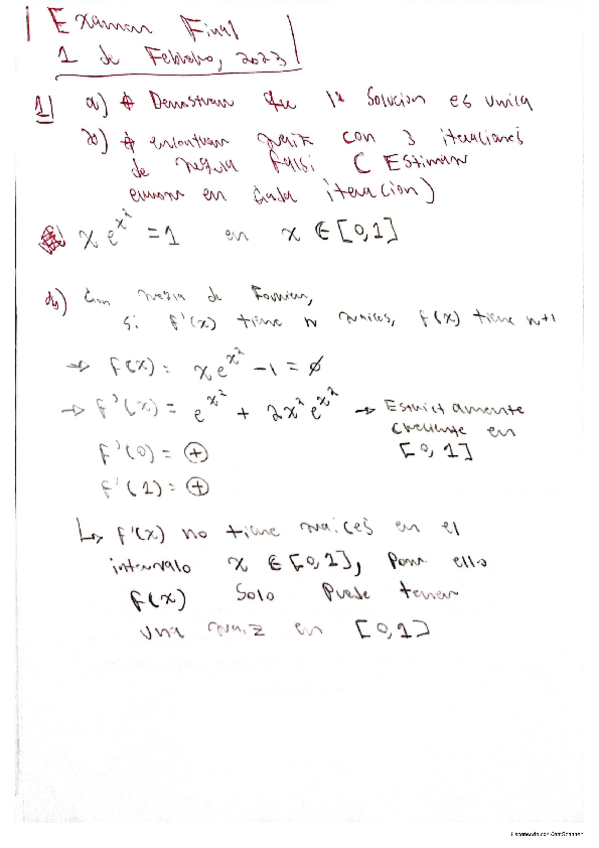 Examen Final
1 de Febrero, 2023
1) a) Demostrar que la solucion es unica
b) encontrar raiz con 3 iteraciones
de regula falsi (Estimar
error en cada iteracion)
x e^{x^2} = 1 en x ∈ [0,1]
a) Con regla de Fourier,
si f'(x) tiene n raices, f(x) tiene n+1
→ f(x) = x e^{x^2} - 1 = 0
→ f'(x) = e^{x^2} + 2x^2 e^{x^2} → Estrictamente
creciente en
f'(0) = ⊕ [0,1]
f'(1) = ⊕
↳ f'(x) no tiene raices en el
intervalo x ∈ [0,1], por ello
f(x) solo puede tener
una raiz en [0,1]
Escaneado con CamScanner